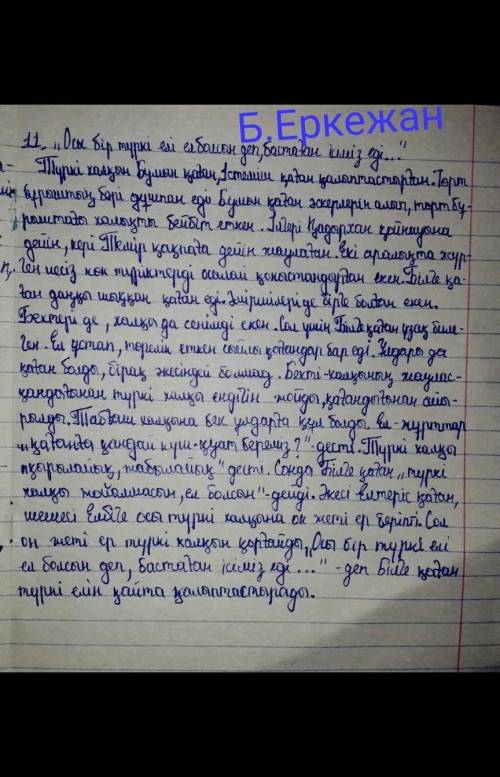 Б.Еркежан
11. „Осы бір түркі елі ел болсын деп, бастаған ісіміз еді..."
Түркі халқын Бумын қаған, Істемін қаған қалыптастырған. Төрт
бұрыштың бәрі дұшпан еді. Бумын қаған әскерлерін алып, төрт бұ-
рыштағы халықты бейбіт еткен. Ілгері Қадырхан қойнауына
дейін, кері Темір қақпаға дейін жаулаған. Екі аралықта жүр-
ген иесіз көк түріктерді осылай қоныстандырған екен. Білге қа-
ған даңқы шыққан қаған еді. Әміршілері де бірге болған екен.
Бектері де, халқы да сенімді екен. Сол үшін Білге қаған ұзақ биле-
ген. Ел ұстап, төрелік еткен сыйлы қағандар бар еді. Ұлдары да
қаған болды, бірақ әкесіндей болмад. Бекті-халқының жаулас-
қандығынан түркі халқы елдігін жойды, қағандығынан айы-
рылды. Табғаш халқына бек ұлдарға құл болды. ел-жұрттар
„қағанға қандай күш-қуат береміз?"-десті. Түркі халқы
„қырылайық, жабылайық" десті. Сонда Білге қаған „түркі
халқы жойылмасын, ел болсын"-дейді. Әкесі Елтеріс қаған,
шешесі Елбілге осы түркі халқына он жеті ер беріпті. Сол
он жеті ер түркі халқын қорғайды, „Осы бір түркі елі
ел болсын деп, бастаған ісіміз еді..." -деп Білге қаған
түркі елін қайта қалыптастырады.